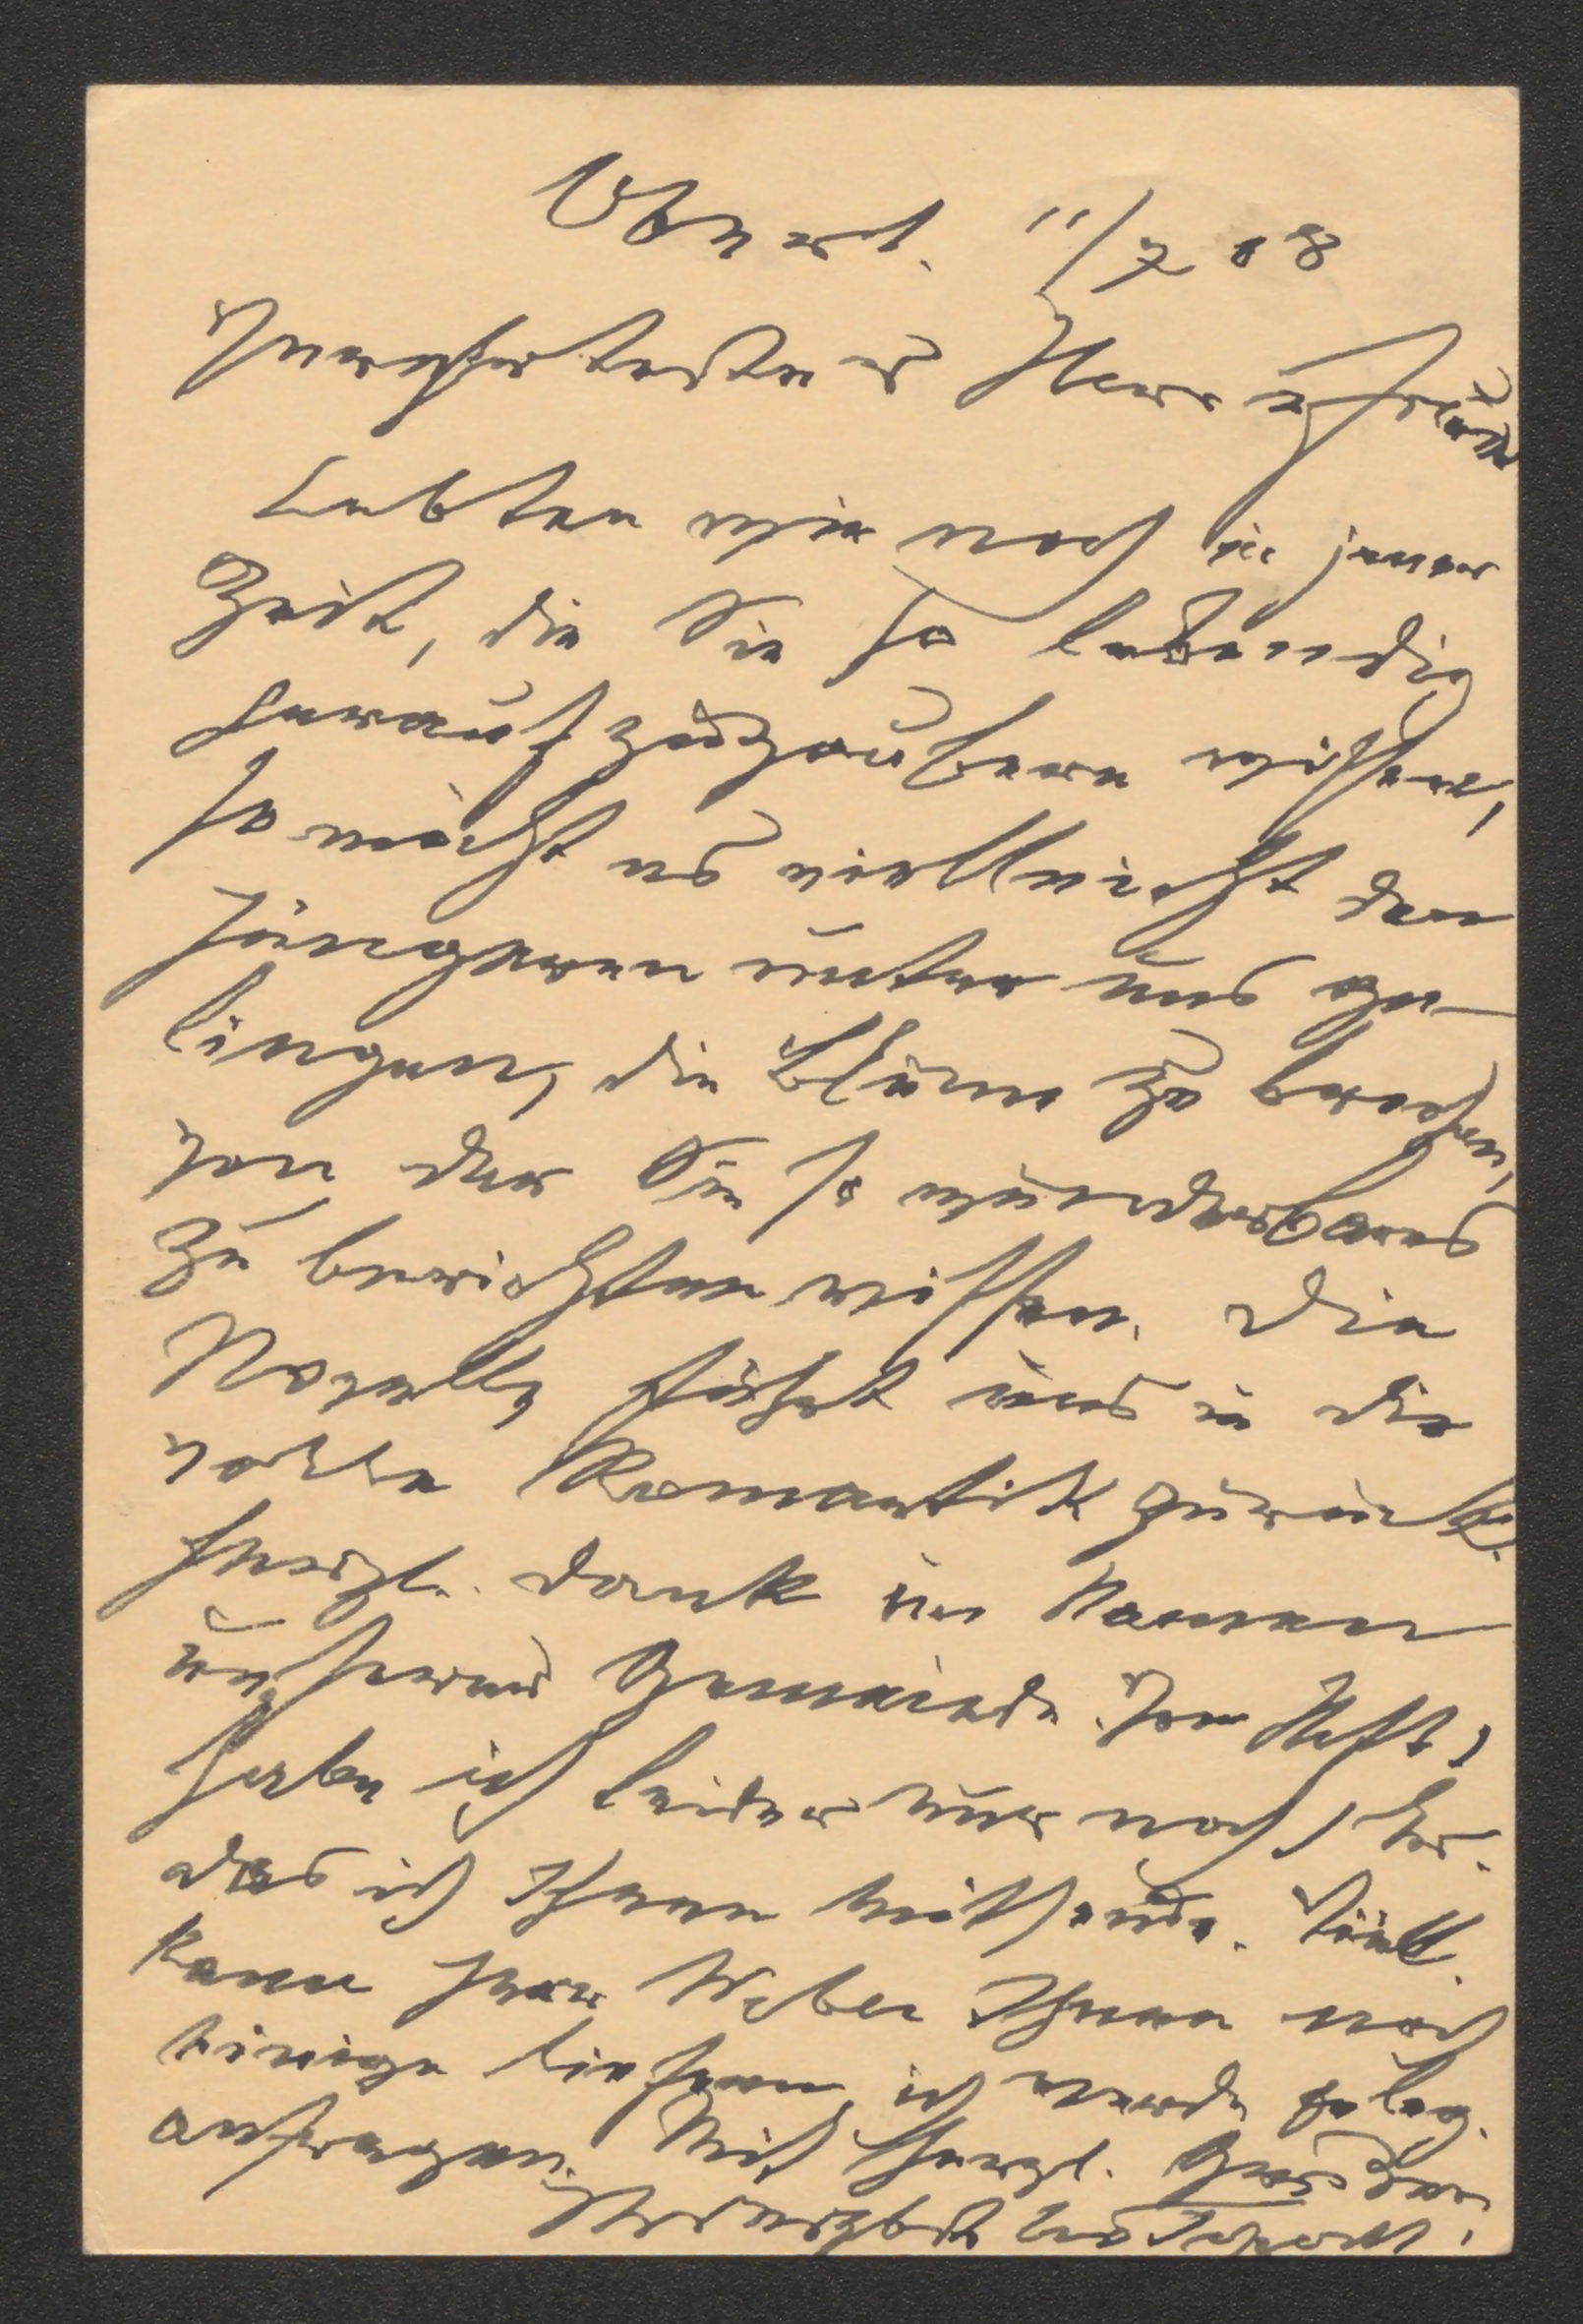 11/7 08
Herr
Lebten wir noch in jener
Zeit, die Sie so lebendig
heraufzuzaubern wissen,
so möcht es vielleicht den
jüngeren unter uns ge-
lingen, die Blume zu brechen,
von der Sie so wunderbares
zu berichten wissen. Die
Novelle führt uns in die
volle Romantik zurück.
Herzl. Dank im Namen
unserer Gemeinde. Von Heft 1
habe ich leider nur noch 1 Ex.
das ich Ihnen mitsende.
kann Herr Weber Ihnen noch
einige liefern, ich werde geleg.
anfragen. Mit herzl. Grüßen